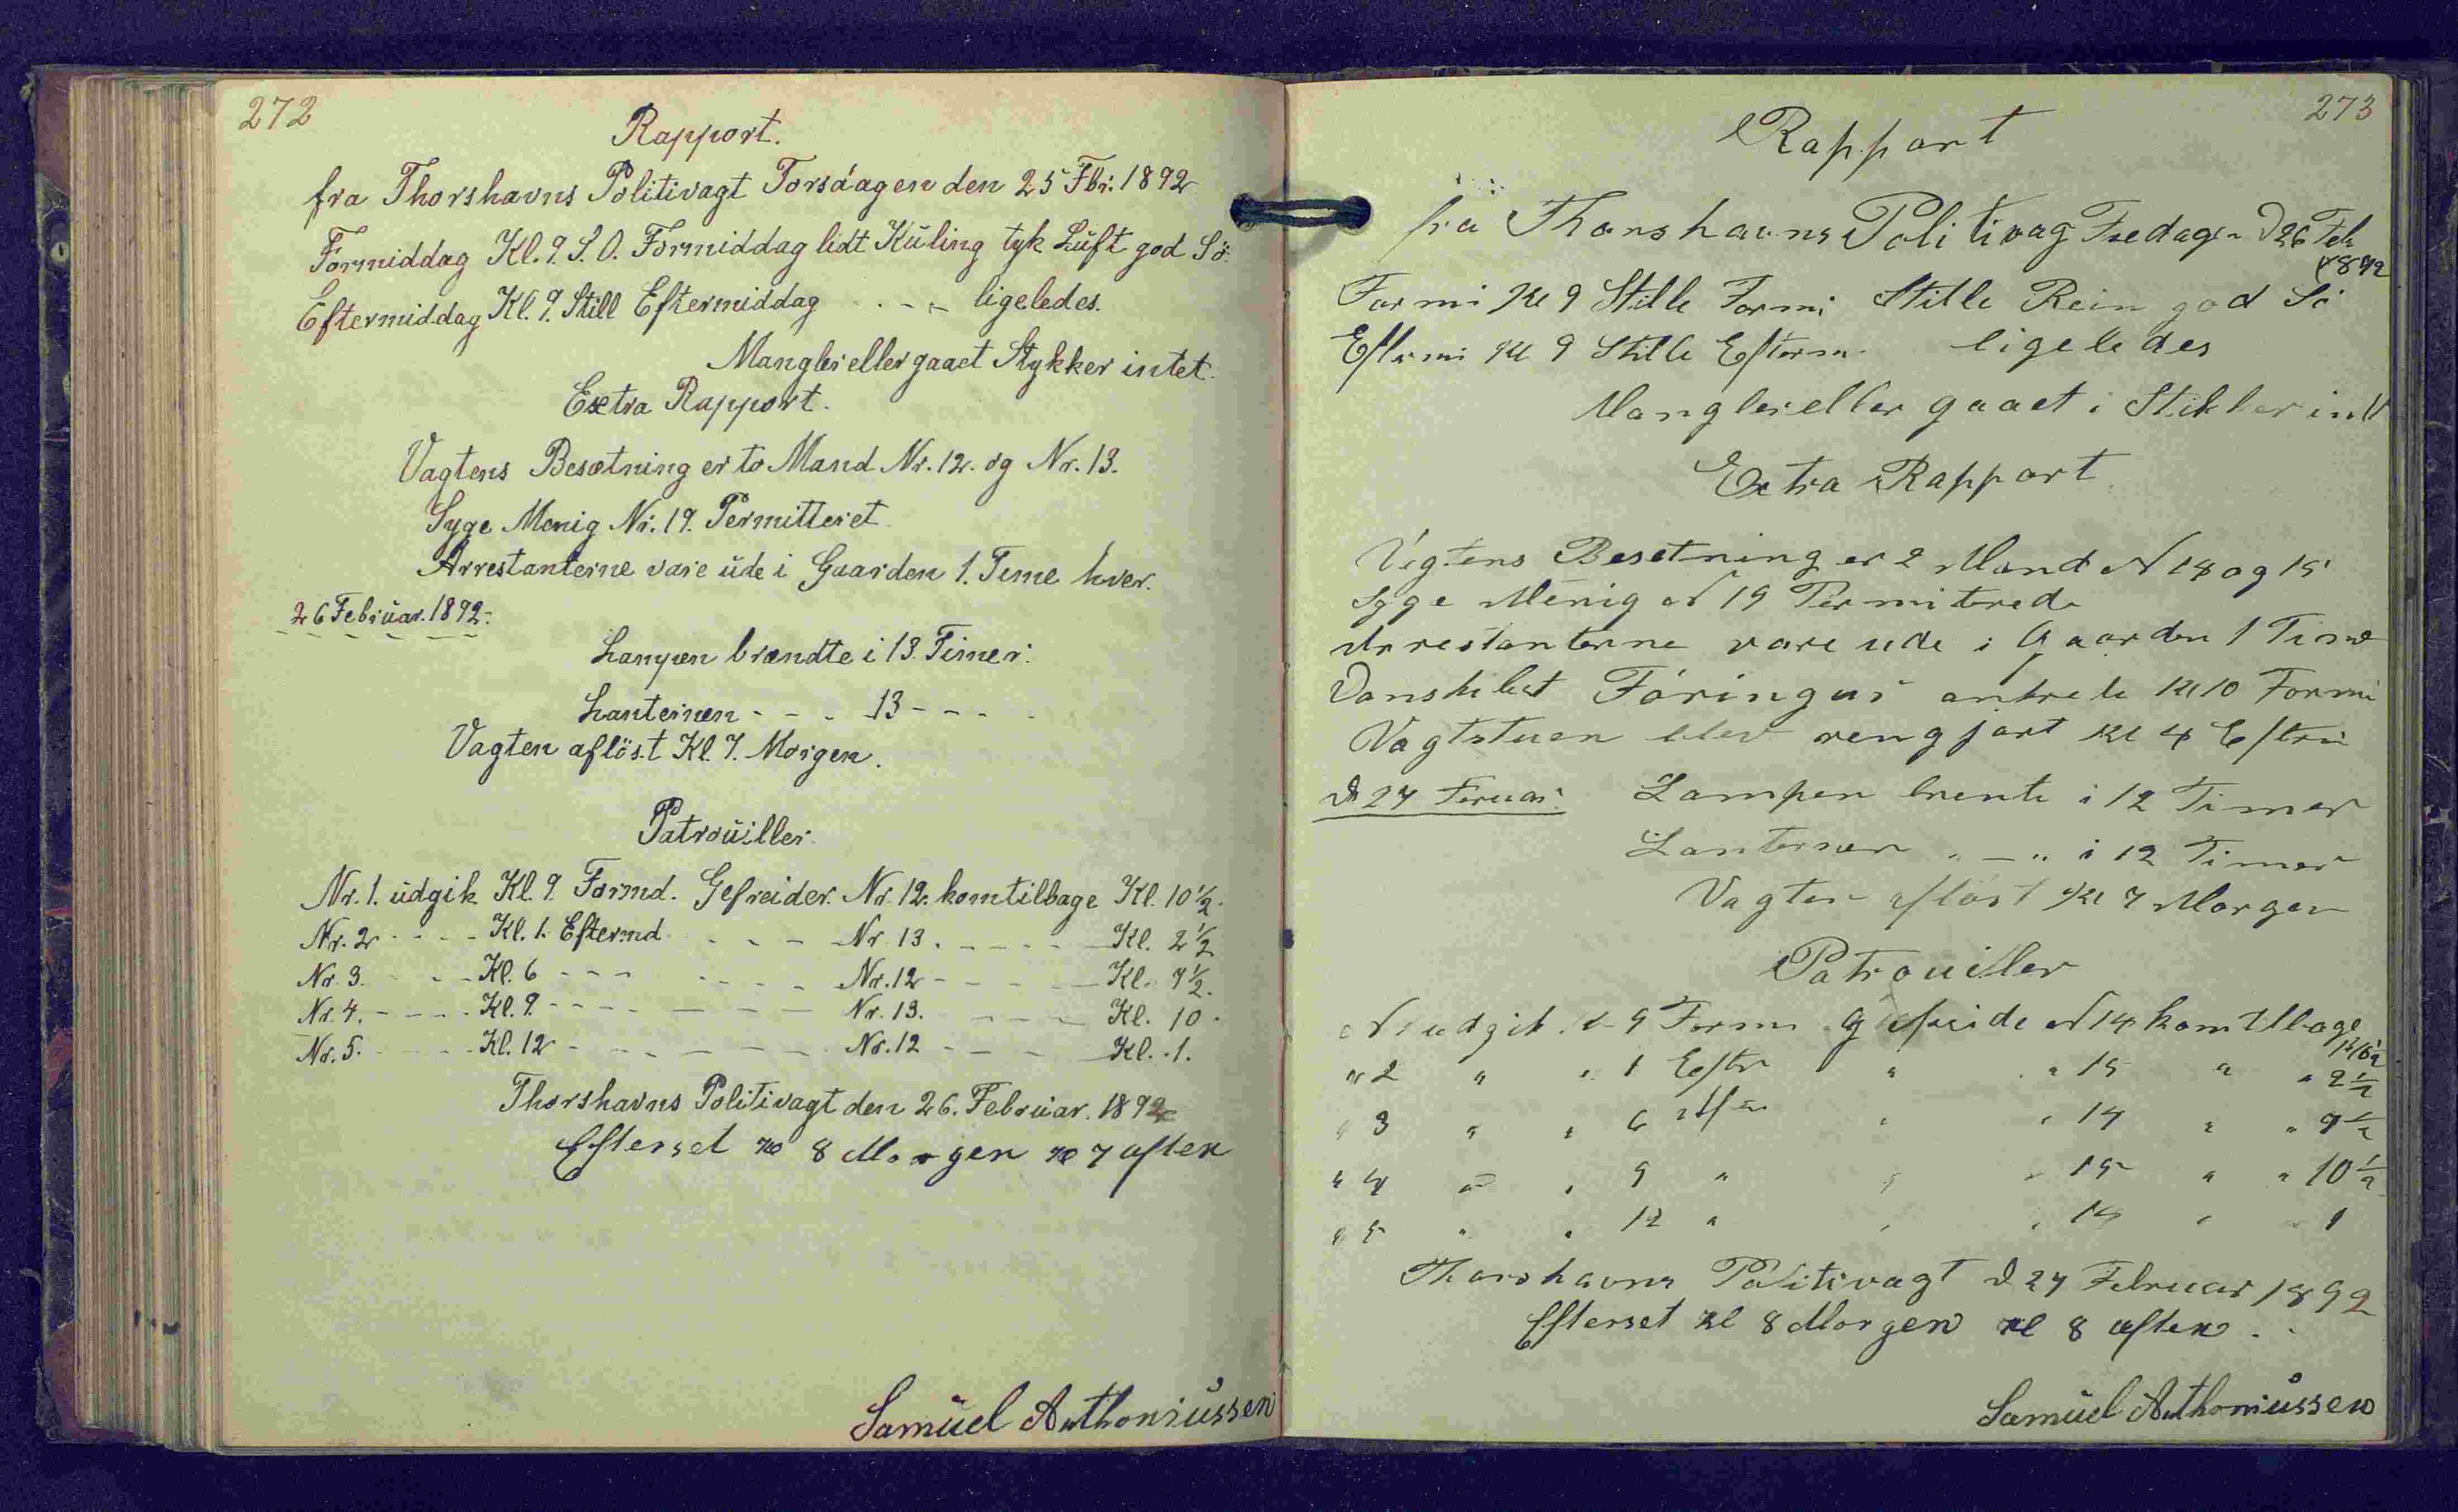 272
Rapport.
fra Thorshavns Politivagt Torsdagen den 25 Fbr. 1892
Formiddag Kl. 9. S. O. Formiddag lidt Kuling tyk Luft god Sö.
Eftermiddag Kl. 9. Still Eftermiddag - - - ligeledes.
Mangler eller gaaet Stykker intet.
Extra Rapport.
Vagtens Besætning er to Mand Nr. 12. og Nr. 13.
Syge Menig Nr. 19. Permitteret
Arrestanterne vare ude i Gaarden 1. Time hver.
26 Februar. 1892.
Lampen brændte i 13 Timer.
Lanternen - - - 13 - - -
Vagten aflöst Kl. 7. Morgen.
Patrouiller.
Nr. 1. udgik Kl. 9. Formd. Gefreider. Nr. 12. kom tilbage Kl. 10 1/2.
Nr. 2 - - - - Kl. 1. Eftermd - - - Nr 13. - - - - - Kl. 2 1/2
Nr. 3. - - - Kl. 6 - - - - - - - Nr. 12 - - - - - Kl. 7 1/2.
Nr. 4. - - - - Kl. 9. - - - - - - - - Nr. 13. - - - - Kl. 10.
Nr. 5. - - - - Kl. 12 - - - - - - - Nr. 12 - - - - Kl. 1.
Thorshavns Politivagt den 26. Februar. 1892
Efterset Kl 8 Morgen Kl 7 aften
Samüel Anthoniüssen
273
Rapport
fra Thorshavns Politivag Fredagen D 26 Feb
1892
Formi Kl 9 Stille Formi Stille Rein god Sö
Eftermi Kl 9 Stille Efterm. ligeledes
Mangler eller gaaet i Stikker
Extra Rapport
Vigtens Besetning er 2 Mand N 14 og 15
Syge Menig N 19 Permiterede
Arrestanterne vare ude i Gaarden 1 Time
Kl 10 Formi
Vagtstuen blev rengjort Kl 4 Eftmi
D 27 Feruar. Lampen brente i 12 Timer
Lanternen " — " i 12 Timer
Vagten aflöst Kl 7 Morgen
Patrouiller
N 1 udgik Kl 9 Form Gefreide N 14 kom tilbage
Kl 10 1/2
" 2 " " 1 Eftr " " 15 " " 2 1/2
" 3 " " 6 " " 14 " " 7 1/2
" 4 " " 9 " " " 15 " " 10 1/2
" 5 " " 12 " " " 14 " " 1
Thorshavns Politivagt D 27 Februar 1892
Efterset Kl 8 Morgen Kl 8 aften.
Samüel Anthoniüssen